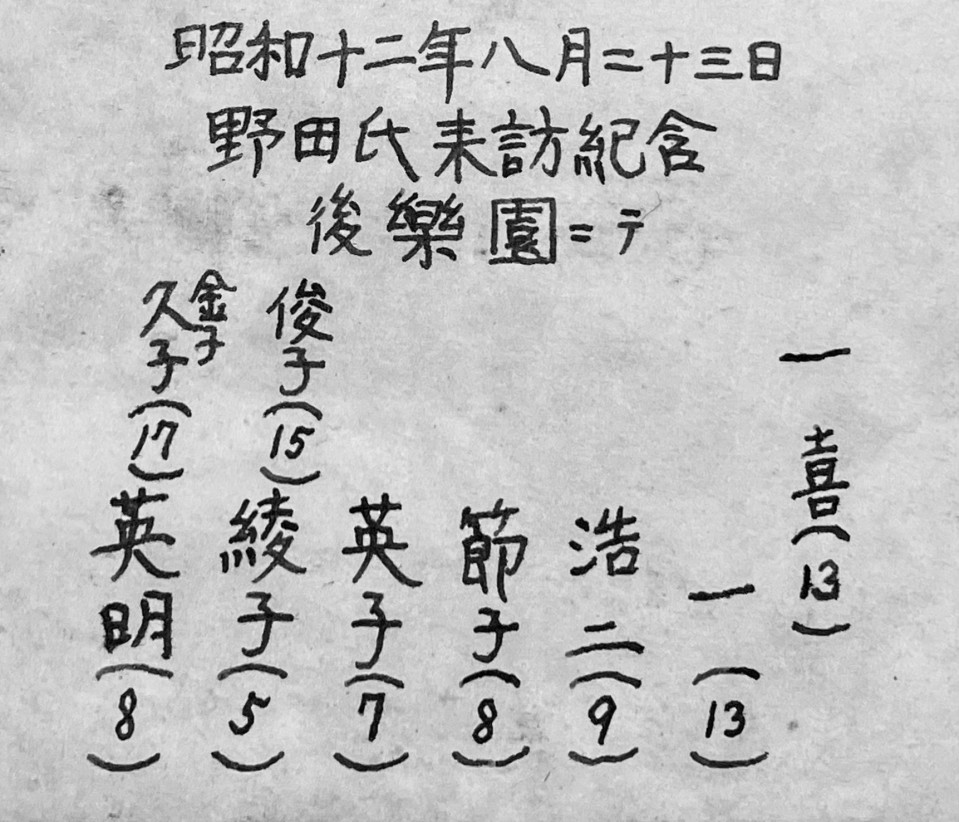 昭和十二年八月二十三日
野田氏来訪紀念
後樂園ニテ
一喜(13)
一(13)
浩二(9)
節子(8)
俊子(15)
英子(7)
綾子(5)
金子
久子(17)
英明(8)